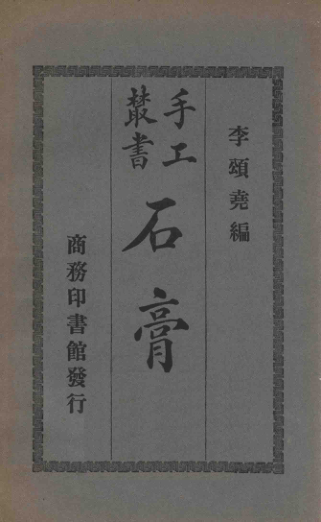 李頌堯編
手工叢書
石膏
商務印書館發行